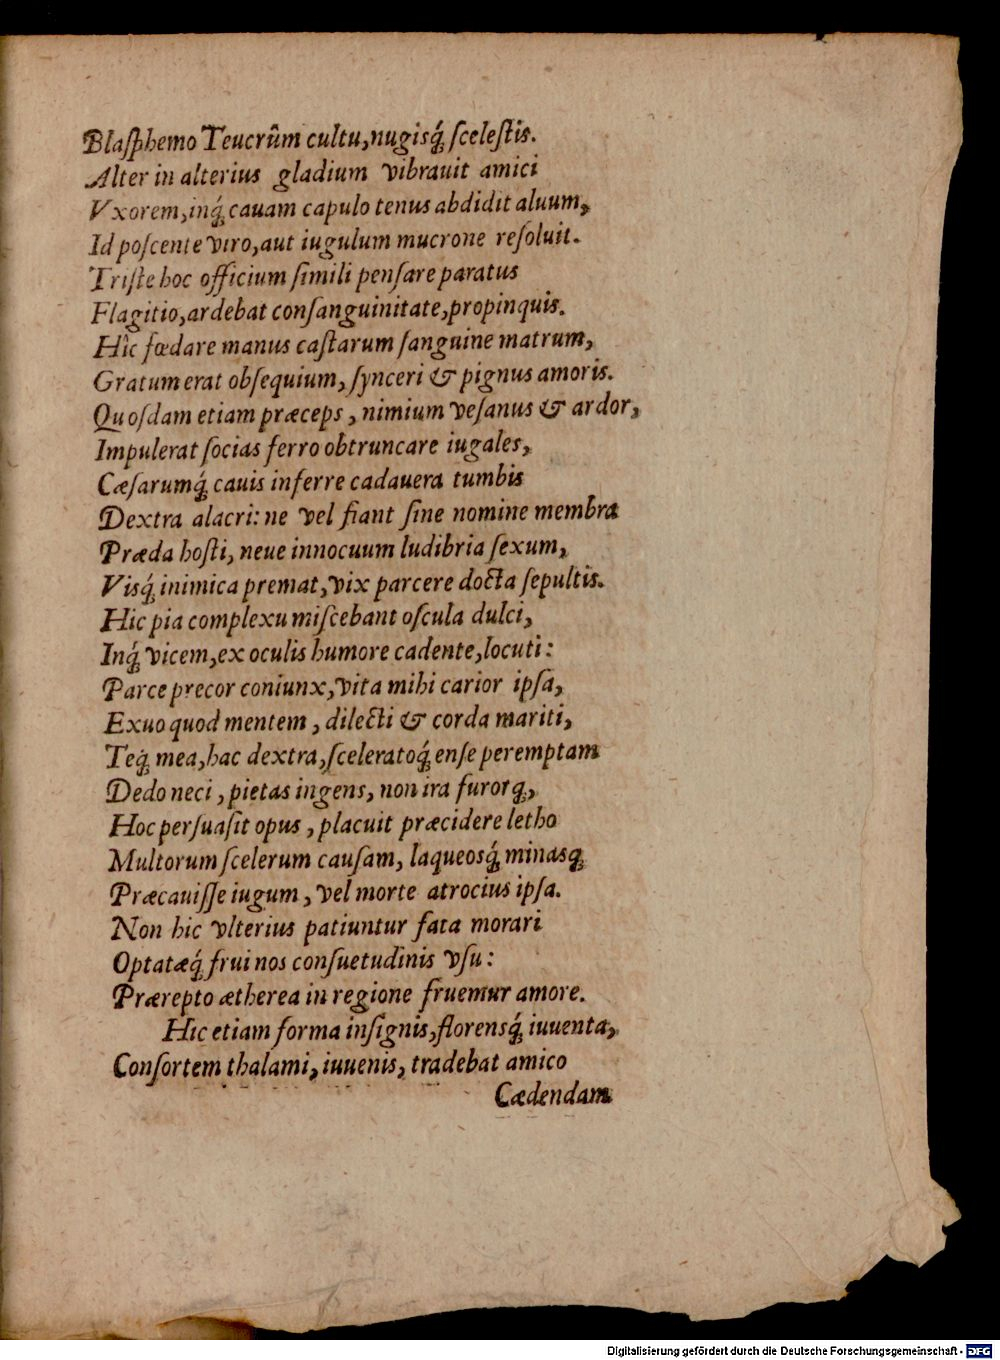 Blaſphemo Teucrûm cultu, nugisq́ꝫ ſceleſtis.
Alter in alterius gladium vibrauit amici
Vxorem, inq́ꝫ cauam capulo tenus abdidit aluum,
Id poſcente viro, aut iugulum mucrone reſoluit.
Triſte hoc officium ſimili penſare paratus
Flagitio, ardebat conſanguinitate, propinquis.
Hic fœdare manus caſtarum ſanguine matrum,
Gratum erat obſequium, ſynceri & pignus amoris.
Quoſdam etiam præceps, nimium veſanus & ardor,
Impulerat ſocias ferro obtruncare iugales,
Cæſarumq́ꝫ cauis inferre cadauera tumbis
Dextra alacri: ne vel fiant ſine nomine membra
Præda hoſti, neue innocuum ludibria ſexum,
Visq́ꝫ inimica premat, vix parcere docta ſepultis.
Hic pia complexu miſcebant oſcula dulci,
Inq́ꝫ vicem, ex oculis humore cadente, locuti:
Parce precor coniunx, vita mihi carior ipſa,
Exuo quod mentem, dilecti & corda mariti,
Teq́ꝫ mea, hac dextra, ſceleratoq́ꝫ enſe peremptam
Dedo neci, pietas ingens, non ira furorqꝫ,
Hoc perſuaſit opus, placuit præcidere letho
Multorum ſcelerum cauſam, laqueosq́ꝫ minasqꝫ
Præcauiſſe iugum, vel morte atrocius ipſa.
Non hic vlterius patiuntur fata morari
Optatæq́ꝫ frui nos conſuetudinis vſu:
Prærepto ætherea in regione fruemur amore.
Hic etiam forma inſignis, florensq́ꝫ iuuenta,
Conſortem thalami, iuuenis, tradebat amico
Cædendam
Digitalisierung gefördert durch die Deutsche Forschungsgemeinschaft - DFG